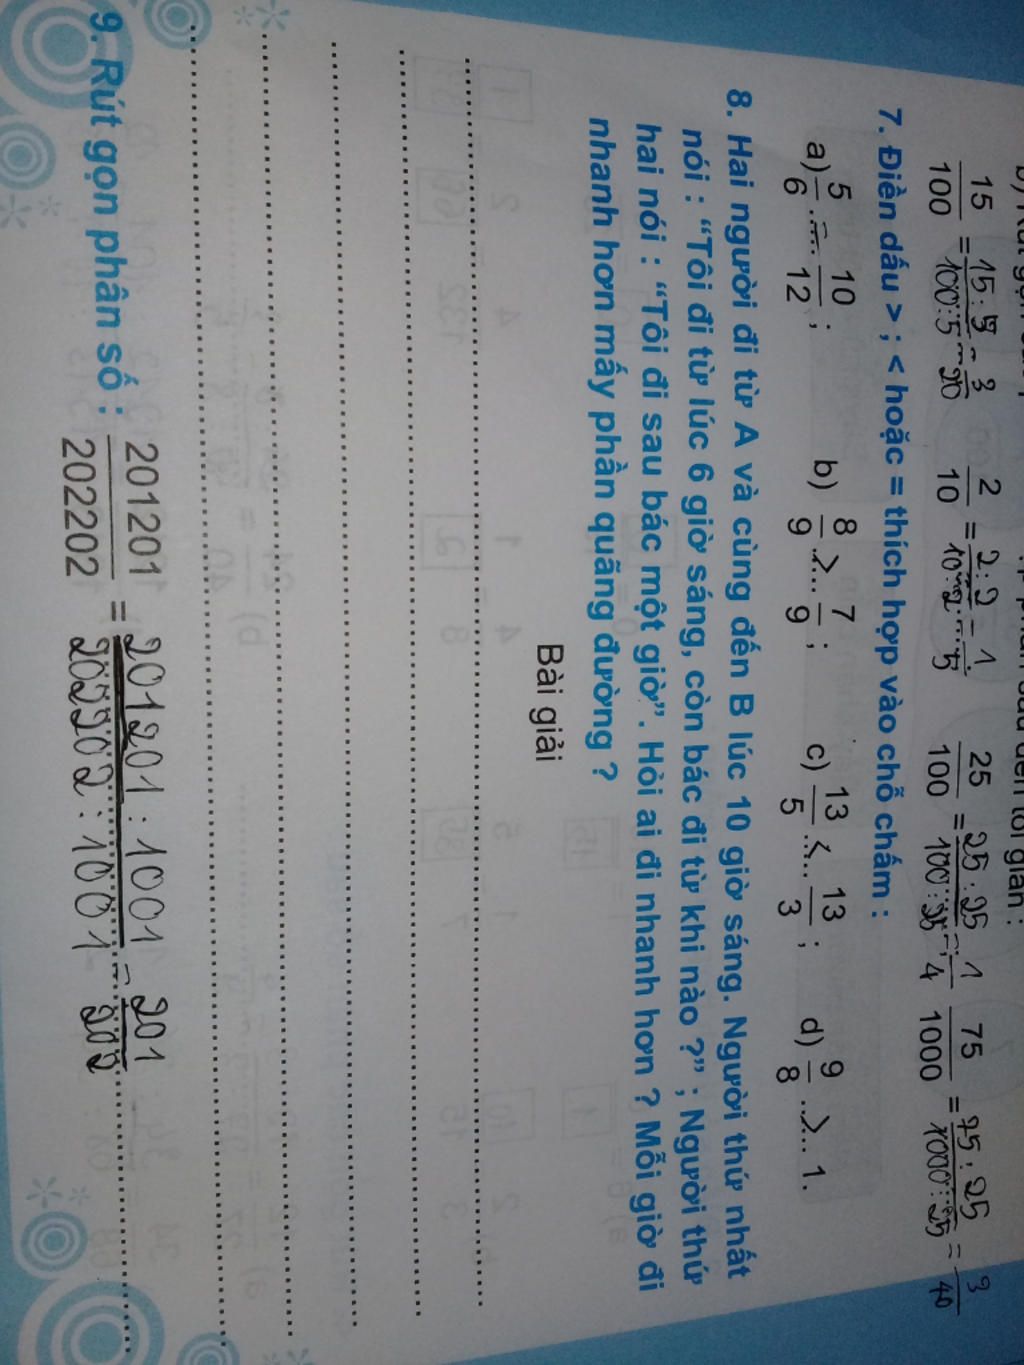 15/100 = 15:5/100:5 = 3/20 2/10 = 2:2/10:2 = 1/5 25/100 = 25:25/100:25 = 1/4 75/1000 = 75:25/1000:25 = 3/40
7. Điền dấu > ; < hoặc = thích hợp vào chỗ chấm :
a) 5/6 ..=.. 10/12 ; b) 8/9 ..>.. 7/9 ; c) 13/5 ..<.. 13/3 ; d) 9/8 ..>.. 1.
8. Hai người đi từ A và cùng đến B lúc 10 giờ sáng. Người thứ nhất
nói : “Tôi đi từ lúc 6 giờ sáng, còn bác đi từ khi nào ?” ; Người thứ
hai nói : “Tôi đi sau bác một giờ”. Hỏi ai đi nhanh hơn ? Mỗi giờ đi
nhanh hơn mấy phần quãng đường ?
Bài giải
9. Rút gọn phân số : 201201/202202 = 201201:1001/202202:1001 = 201/202